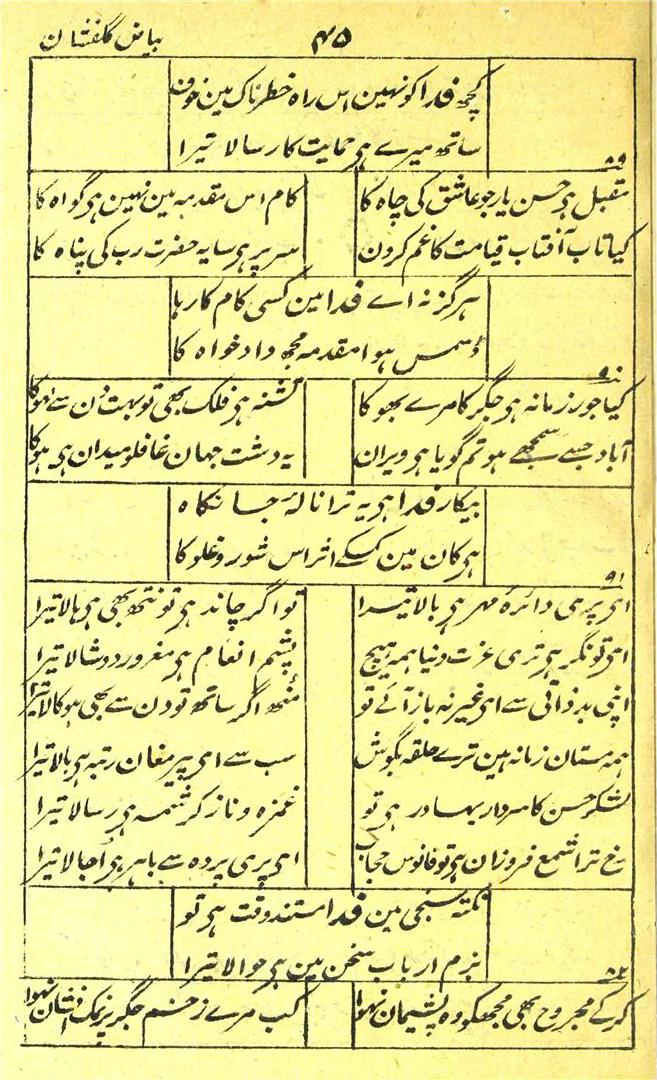 ۴۵
بیاض گلفشان
کچھ فدا کو نہین اس راہ خطرناک مین خوف
ساتھ میرے ہی حمایت کا رسالا تیرا
۸۹
متقبل ہو حسن یار جو عاشق کی چاہ کا
کام اس مقدمہ مین نہین ہی گواہ کا
کیا تاب آفتاب قیامت کا غم کرون
سر پر ہی سایہ حضرت رب کی پناہ کا
ہرگز نہ اے فدا مین کسی کام کا رہا
ڈسمس ہوا مقدمہ مجھ داد خواہ کا
۹۰
کیا جور زمانہ ہی جگر کا مرے بھوکا
تشنہ ہی فلک بھی تو بہت دن سے لہو کا
آباد جسے سمجھے ہو تم گویا ہی ویران
یہ دشت جہان غافلو میدان ہی ہو کا
بیکار فدا ہی یہ ترا نالۂ جانکاہ
ہی کان مین کسکے اثر اس شور و غلو کا
۹۱
ای پری دائرۂ مہر ہی بالا تیرا
تو اگر چاند ہی تو نتھ بھی ہی ہالا تیرا
ای تونگر ہی تری عزت دنیا ہمہ ہیچ
پشم انعام ہی مغرور دوشالا تیرا
اپنی بد ذاتی سے ای غیر نہ باز آئے تو
منھ اگر ساتھ تو دن سے بھی ہو کالا تیرا
ہمہ مستان زمانہ ہین ترے حلقہ بگوش
سب سے ای پیر مغان رتبہ ہی بالا تیرا
لشکر حسن کا سردار بہادر ہی تو
غمزہ و ناز کرشمہ ہی رسالا تیرا
رخ ترا شمع فروزان ہی تو فانوس حجاب
ای پری پردہ سے باہر ہی اُجالا تیرا
نکتہ سنجی مین فدا مستند وقت ہی تو
بزم ارباب سخن مین ہی حوالا تیرا
۹۲
کر کے مجروح بھی مجھکو وہ پشیمان نہوا
کب مرے زخم جگر پر نمک افشان نہوا